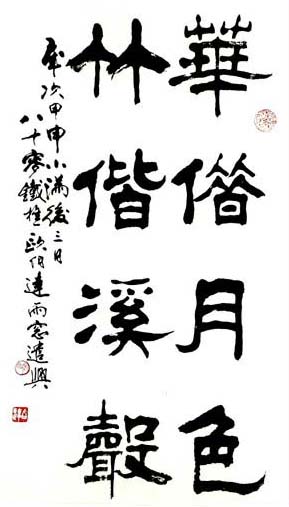 華借月色
竹偕溪聲
歲次甲申小滿後三日
八十零鐵 歐伯達雨窗遣興